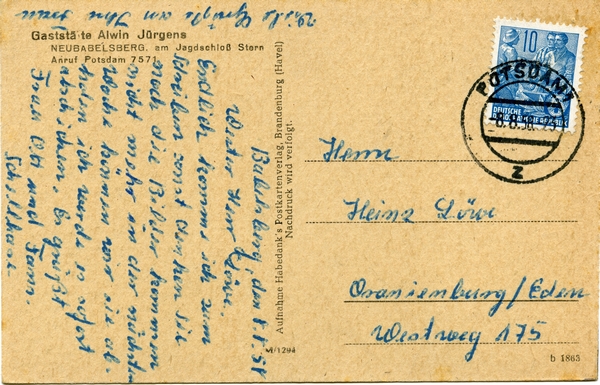 Viele Grüße an Ihre Frau
Gaststätte Alwin Jürgens
NEUBABELSBERG, am Jagdschloß Stern
Anruf Potsdam 7571
Babelsberg, den 8.8.58
Werter Herr Löwe.
Endlich komme ich zum
Schreiben sonst denken Sie
noch die Bilder kommen
nicht mehr in der nächsten
Woche können wir sie ab-
holen ich werde es sofort
abschicken. Es grüßt
Frau Ott und Fam
Aufnahme Habedank's Postkartenverlag, Brandenburg (Havel)
Nachdruck wird verfolgt.
A/1294
10
DEUTSCHE
DEMOKRATISCHE REPUBLIK
POTSDAM
Z
Herrn
Heinz Löwe
Oranienburg/Eden
Westweg 175
b 1863